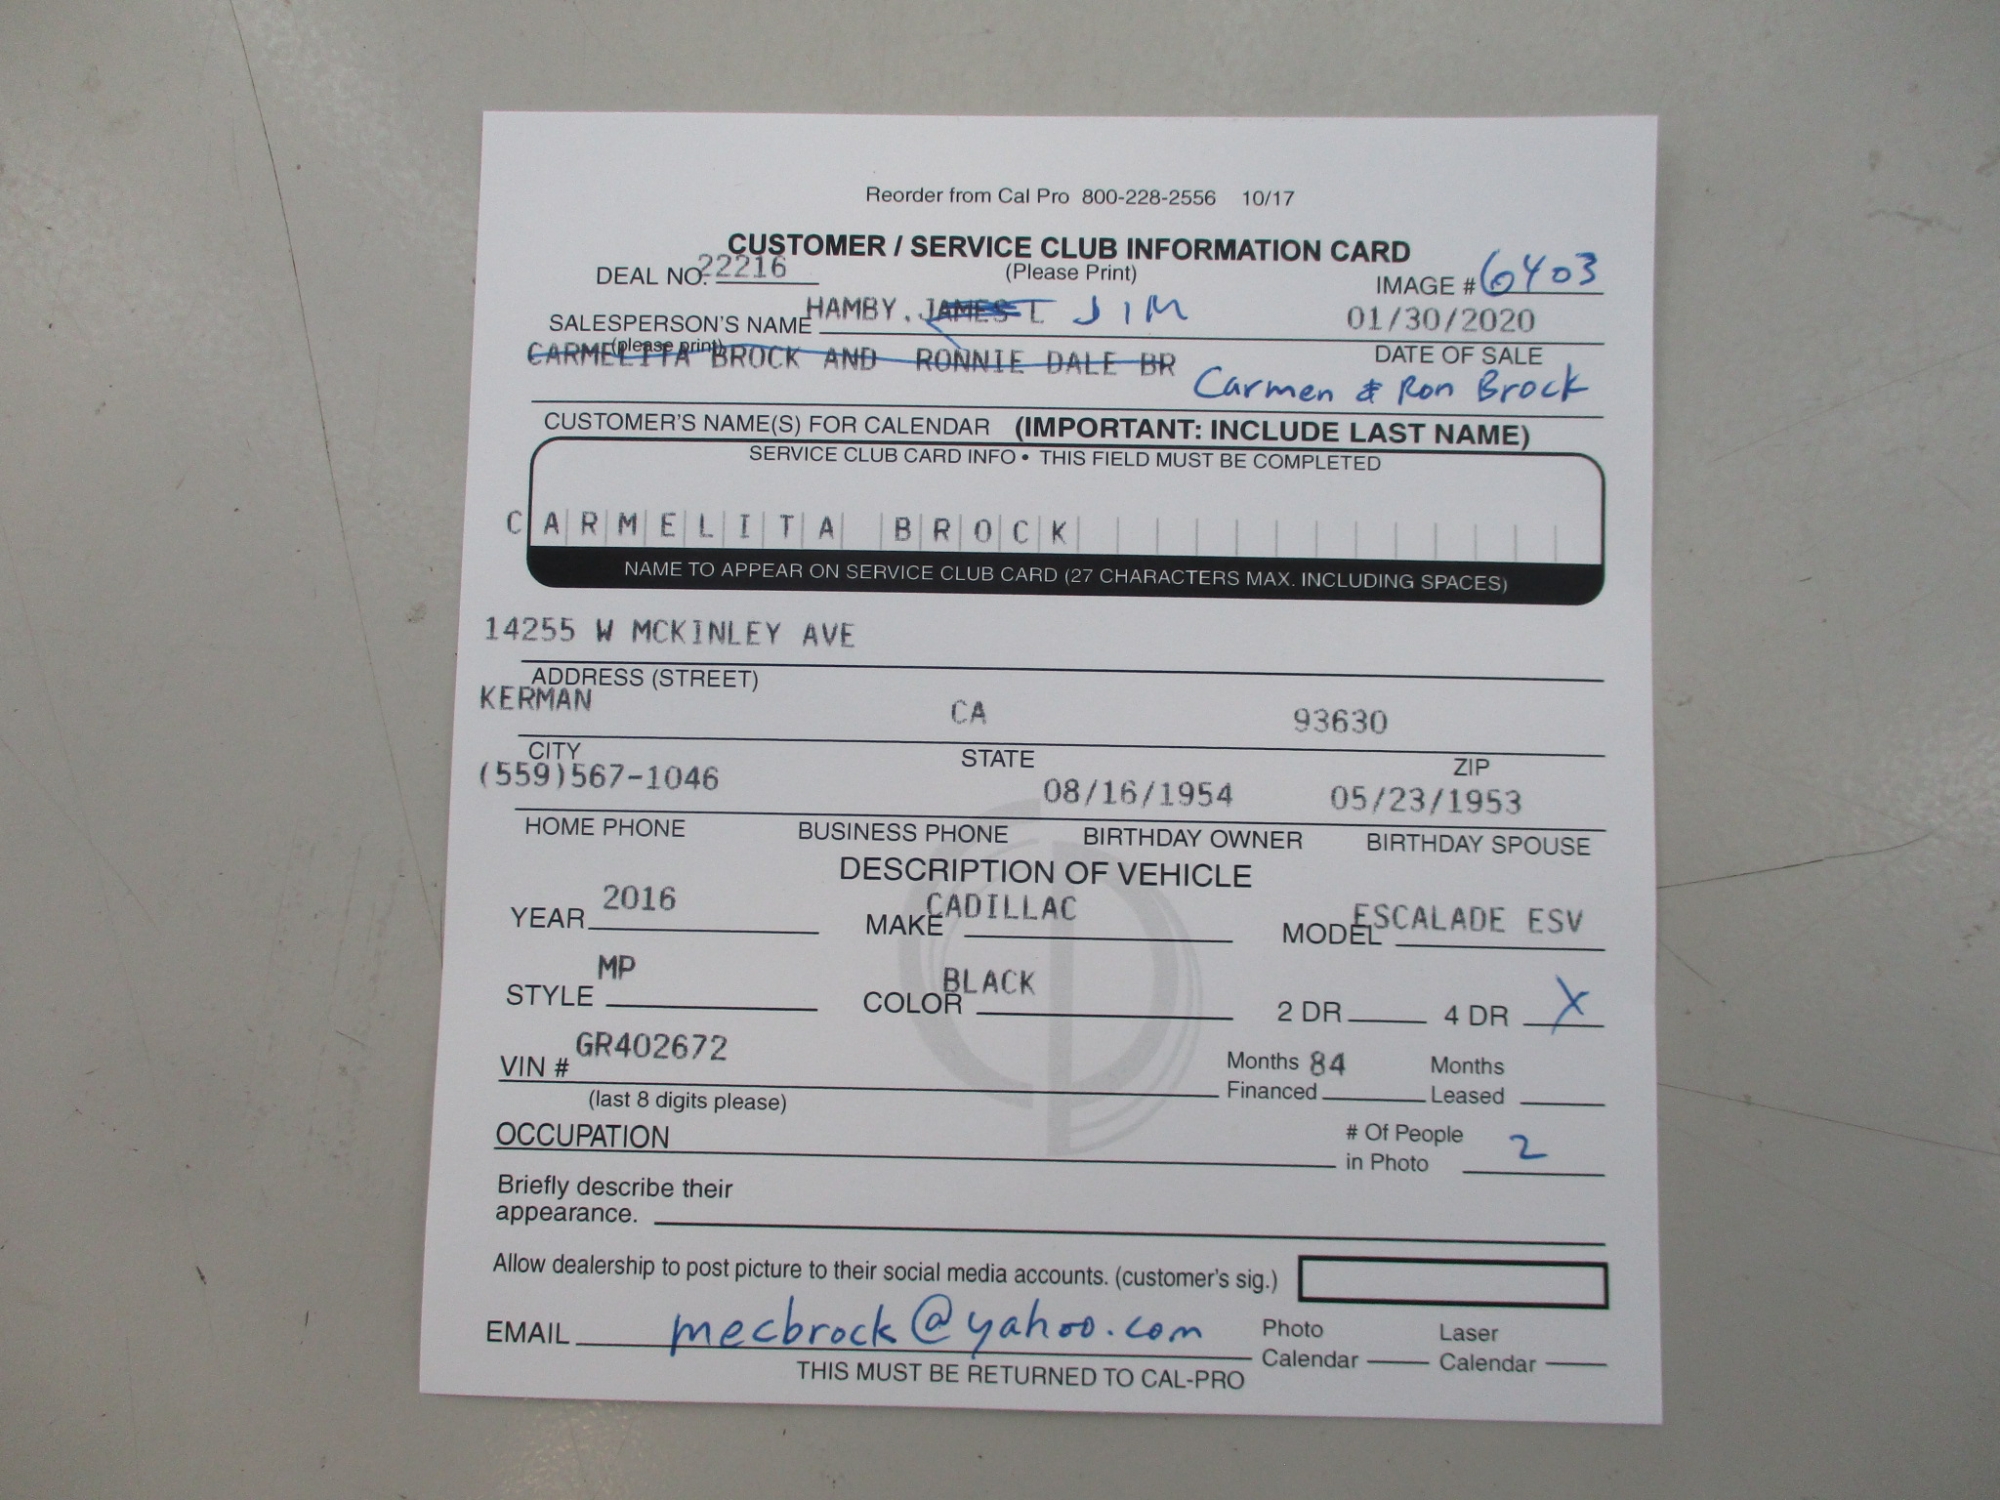 Reorder from Cal Pro 800-228-2556 10/17
CUSTOMER / SERVICE CLUB INFORMATION CARD
DEAL NO. 22216 (Please Print) IMAGE # 6403
SALESPERSON'S NAME HAMBY, JAMES L JIM 01/30/2020
(please print) DATE OF SALE
CARMELITA BROCK AND RONNIE DALE BR Carmen & Ron Brock
CUSTOMER'S NAME(S) FOR CALENDAR (IMPORTANT: INCLUDE LAST NAME)
SERVICE CLUB CARD INFO • THIS FIELD MUST BE COMPLETED
CARMELITA BROCK
NAME TO APPEAR ON SERVICE CLUB CARD (27 CHARACTERS MAX. INCLUDING SPACES)
14255 W MCKINLEY AVE
ADDRESS (STREET)
KERMAN CA 93630
CITY STATE ZIP
(559)567-1046 08/16/1954 05/23/1953
HOME PHONE BUSINESS PHONE BIRTHDAY OWNER BIRTHDAY SPOUSE
DESCRIPTION OF VEHICLE
YEAR 2016 MAKE CADILLAC MODEL ESCALADE ESV
STYLE MP COLOR BLACK 2 DR 4 DR X
VIN # GR402672 Months Financed 84 Months Leased
(last 8 digits please)
OCCUPATION # Of People in Photo 2
Briefly describe their
appearance.
Allow dealership to post picture to their social media accounts. (customer's sig.)
EMAIL mecbrock@yahoo.com Photo Calendar Laser Calendar
THIS MUST BE RETURNED TO CAL-PRO